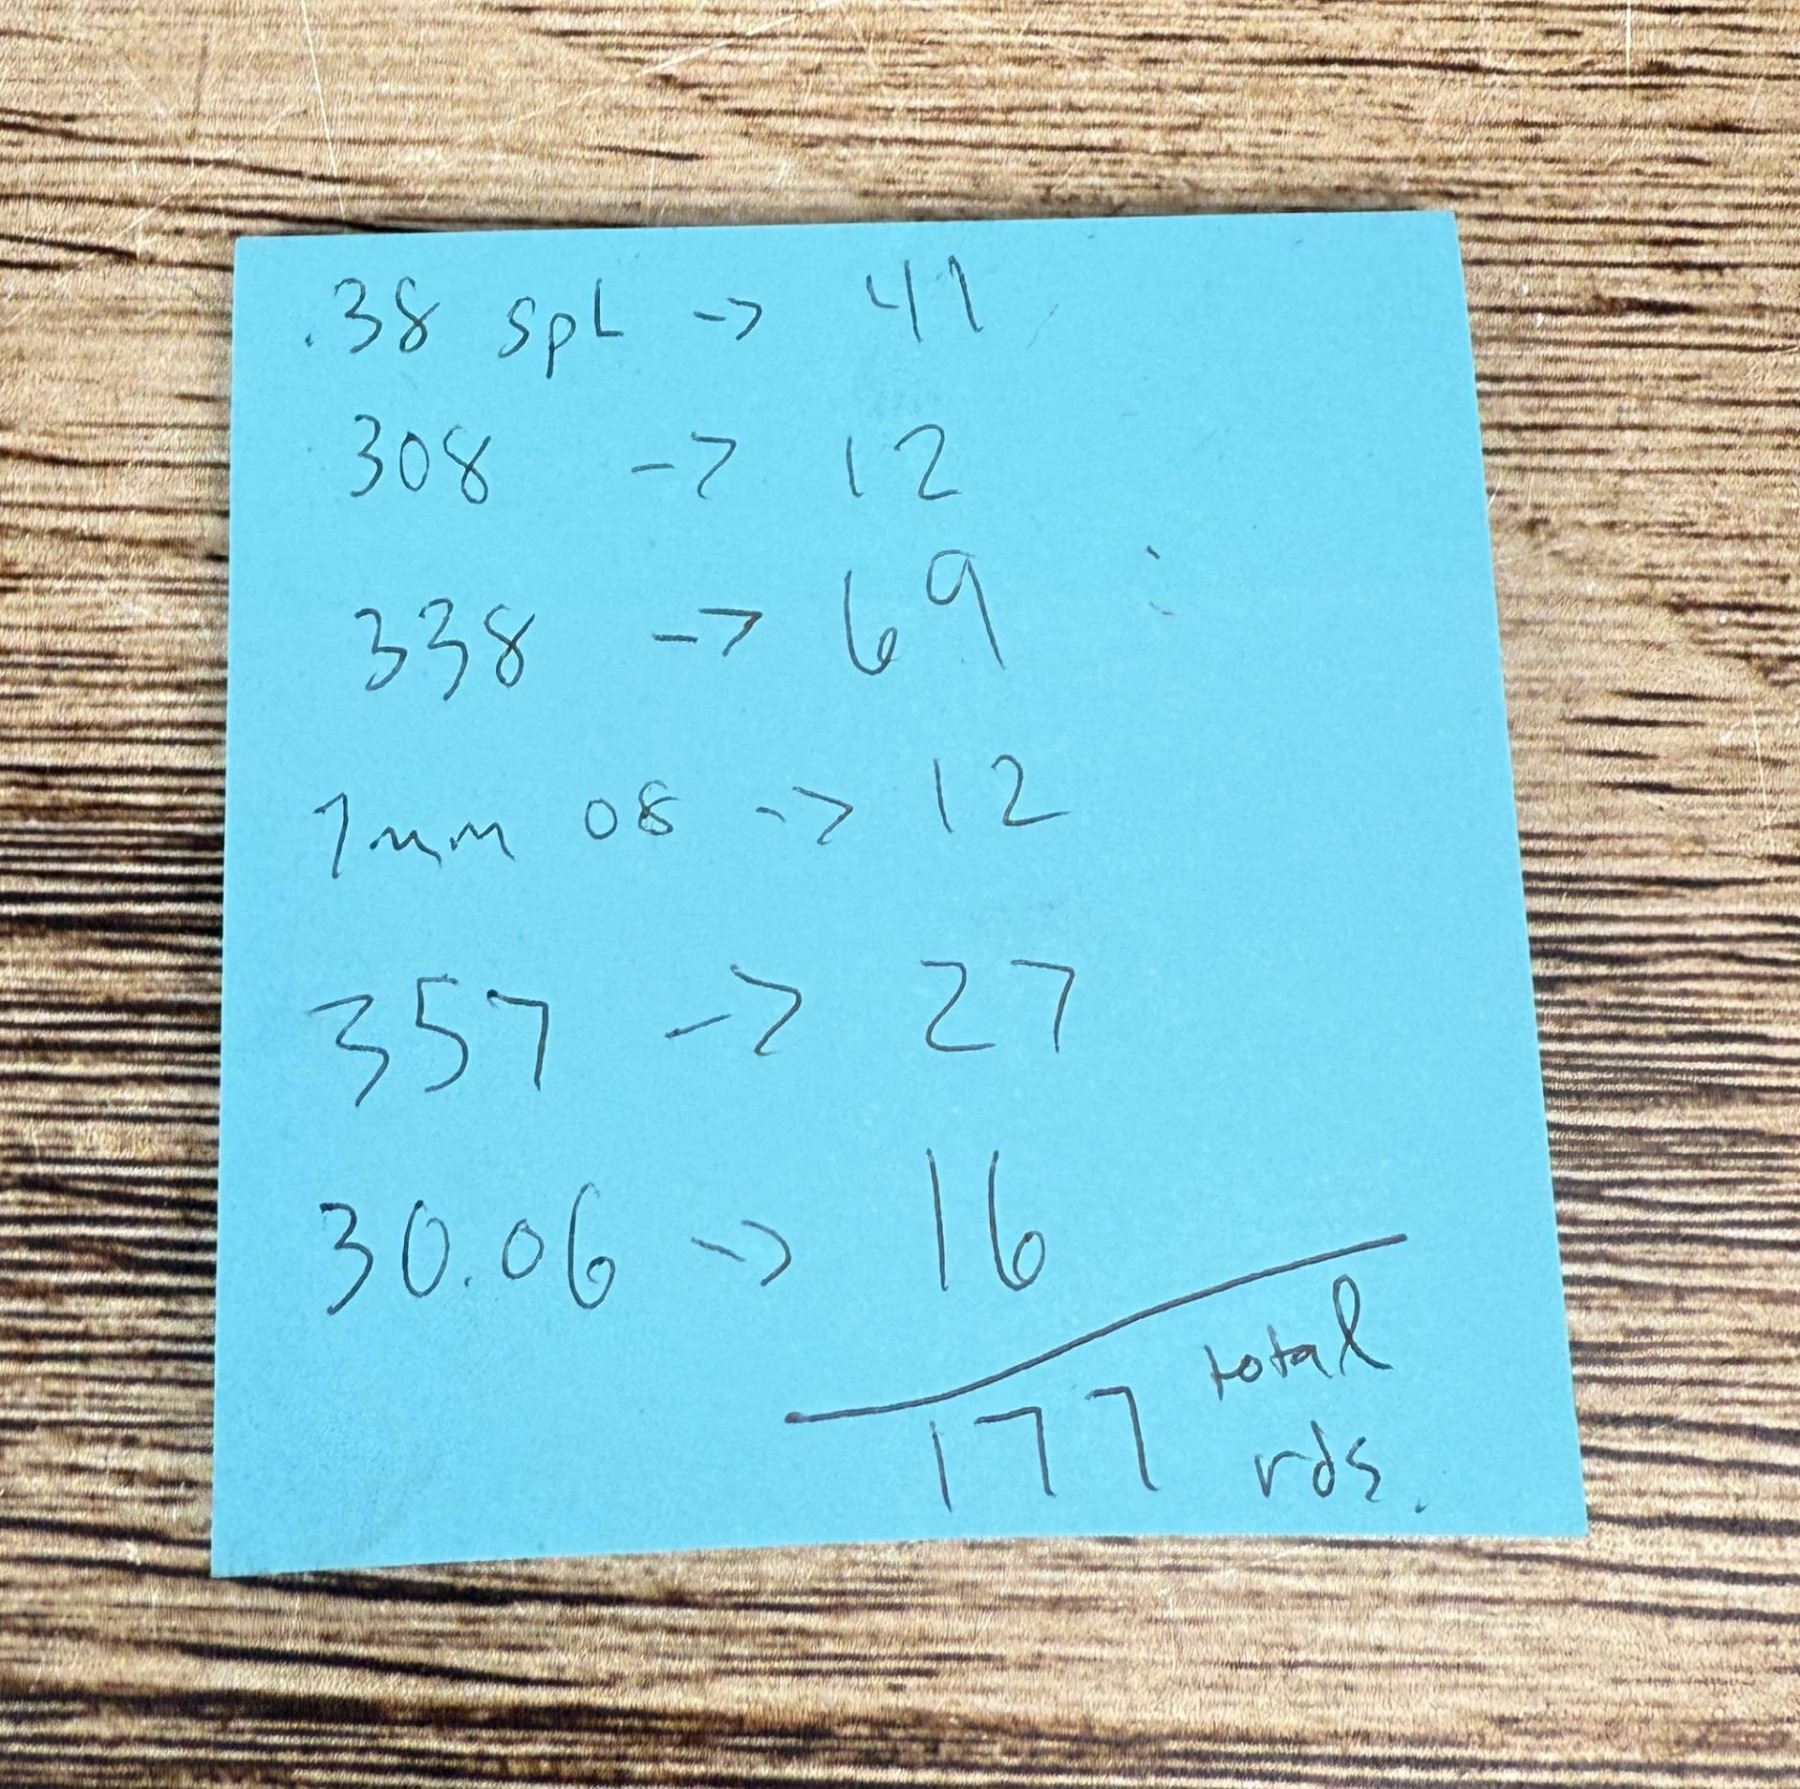 .38 spL -> 41
308 -> 12
338 -> 69
7mm 08 -> 12
357 -> 27
30.06 -> 16
177 total
rds.